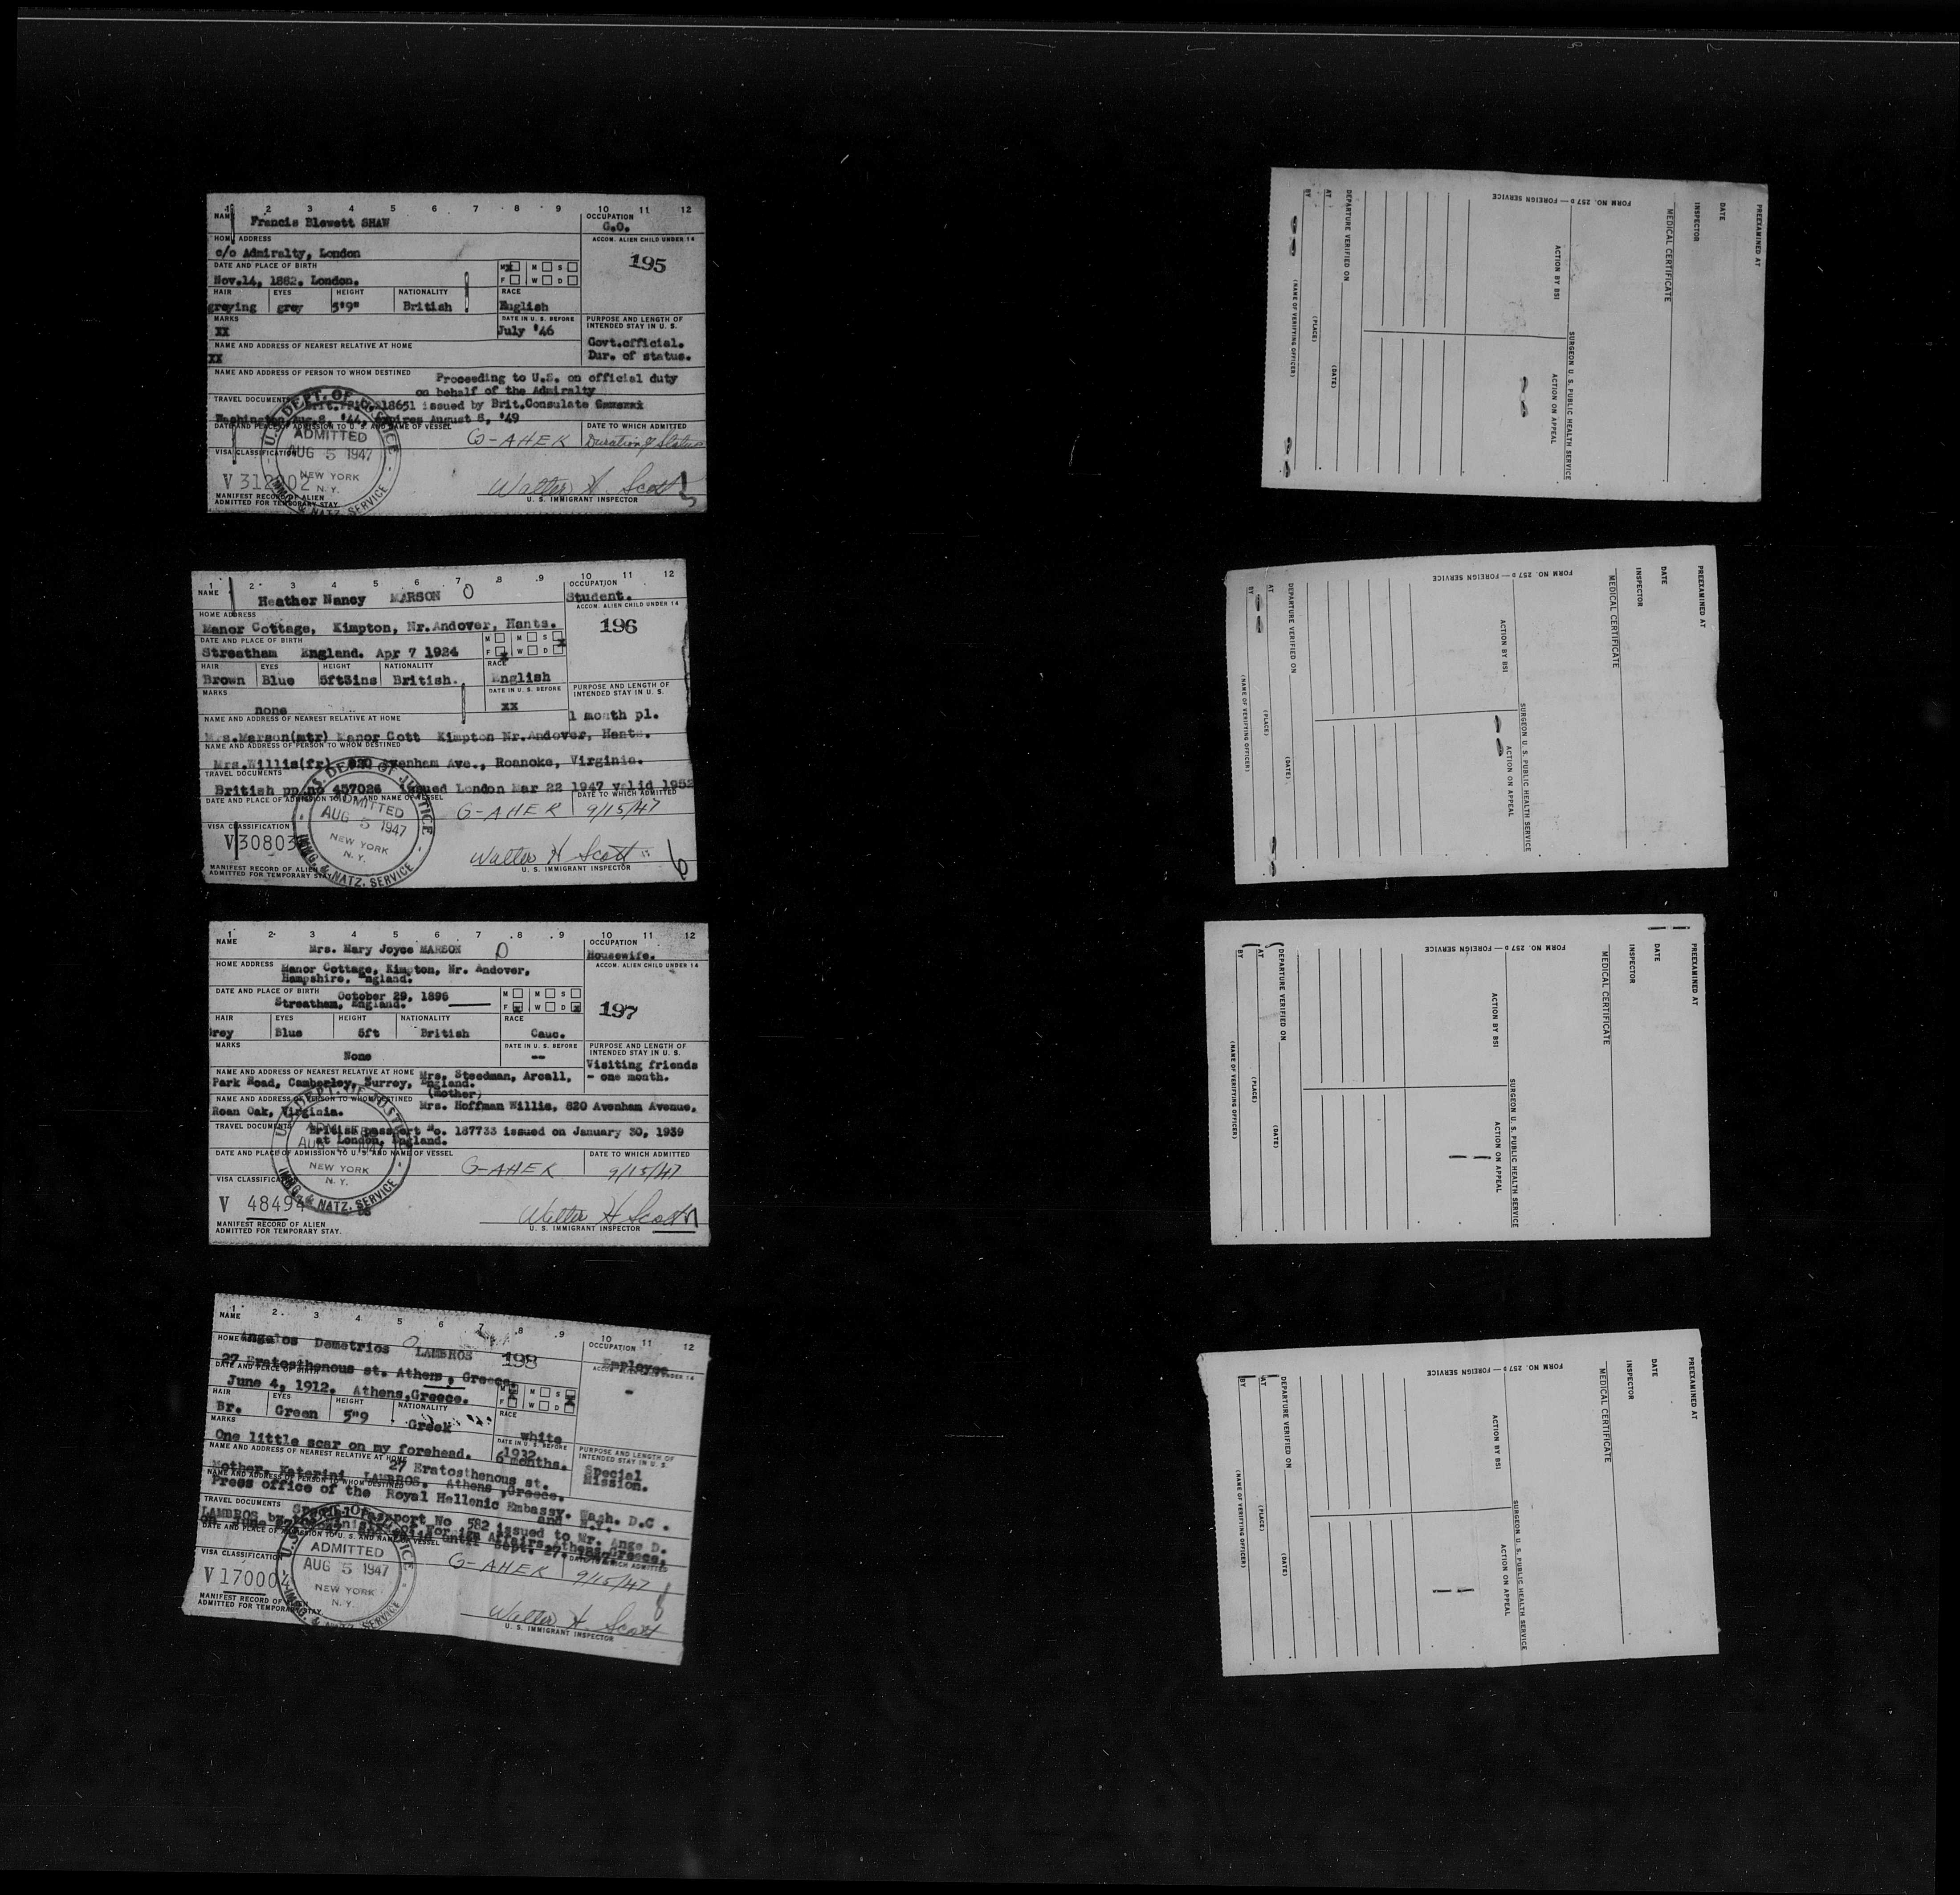 1 2 3 4 5 6 7 8 9 10 11 12
NAME Francis Blewett SHAW
OCCUPATION
G.O.
HOME ADDRESS
c/o Admiralty, London
ACCOM. ALIEN CHILD UNDER 14
195
DATE AND PLACE OF BIRTH
Nov.14, 1882. London.
M X M S
F W D
HAIR EYES HEIGHT NATIONALITY RACE
greying grey 5'9" British English
MARKS
XX
DATE IN U. S. BEFORE
July '46
PURPOSE AND LENGTH OF
INTENDED STAY IN U. S.
Govt.official.
Dur. of status.
NAME AND ADDRESS OF NEAREST RELATIVE AT HOME
XX
NAME AND ADDRESS OF PERSON TO WHOM DESTINED
Proceeding to U.S. on official duty
on behalf of the Admiralty
TRAVEL DOCUMENTS
18651 issued by Brit.Consulate
Washington Aug.8, '44, expires August 8, '49
DATE AND PLACE OF ADMISSION TO U. S. AND NAME OF VESSEL
G-AHEK
DATE TO WHICH ADMITTED
Duration of Status
U.S. DEPT. OF JUSTICE
ADMITTED
AUG 5 1947
NEW YORK
N. Y.
IMMG. & NATZ. SERVICE
VISA CLASSIFICATION
V 312002
MANIFEST RECORD OF ALIEN
ADMITTED FOR TEMPORARY STAY
Walter H Scott
U. S. IMMIGRANT INSPECTOR
5
1 2 3 4 5 6 7 8 9 10 11 12
NAME Heather Nancy MARSON O
OCCUPATION
Student.
HOME ADDRESS
Manor Cottage, Kimpton, Nr.Andover, Hants.
ACCOM. ALIEN CHILD UNDER 14
196
DATE AND PLACE OF BIRTH
Streatham England. Apr 7 1924
M M S X
F X W D
HAIR EYES HEIGHT NATIONALITY RACE
Brown Blue 5ft3ins British. English
MARKS
none
DATE IN U. S. BEFORE
xx
PURPOSE AND LENGTH OF
INTENDED STAY IN U. S.
1 month pl.
NAME AND ADDRESS OF NEAREST RELATIVE AT HOME
Mrs.Marson(mtr) Manor Cott Kimpton Nr.Andover, Hants.
NAME AND ADDRESS OF PERSON TO WHOM DESTINED
Mrs.Willis(fr) 820 Avenham Ave., Roanoke, Virginia.
TRAVEL DOCUMENTS
British pp.no 457026 issued London Mar 22 1947 valid 1952
DATE AND PLACE OF ADMISSION TO U. S. AND NAME OF VESSEL
G-AHEK
DATE TO WHICH ADMITTED
9/15/47
U.S. DEPT OF JUSTICE
ADMITTED
AUG 5 1947
NEW YORK
N. Y.
IMMG. & NATZ. SERVICE
VISA CLASSIFICATION
V 30803
MANIFEST RECORD OF ALIEN
ADMITTED FOR TEMPORARY STAY
Walter H Scott
U. S. IMMIGRANT INSPECTOR
6
1 2 3 4 5 6 7 8 9 10 11 12
NAME
Mrs. Mary Joyce MARSON O
OCCUPATION
Housewife.
HOME ADDRESS Manor Cottage, Kimpton, Nr. Andover,
Hampshire, England.
ACCOM. ALIEN CHILD UNDER 14
197
DATE AND PLACE OF BIRTH October 29, 1896
Streatham, England.
M M S
F X W D X
HAIR EYES HEIGHT NATIONALITY RACE
Grey Blue 5ft British Cauc.
MARKS
None
DATE IN U. S. BEFORE
--
PURPOSE AND LENGTH OF
INTENDED STAY IN U. S.
Visiting friends
- one month.
NAME AND ADDRESS OF NEAREST RELATIVE AT HOME Mrs. Steedman, Arcall,
Park Road, Camberley, Surrey, England.
(mother)
NAME AND ADDRESS OF PERSON TO WHOM DESTINED
Mrs. Hoffman Willis, 820 Avenham Avenue,
Roan Oak, Virginia.
TRAVEL DOCUMENTS British passport No. 187733 issued on January 30, 1939
at London, England.
DATE AND PLACE OF ADMISSION TO U. S. AND NAME OF VESSEL
G-AHEK
DATE TO WHICH ADMITTED
9/15/47
ADMITTED
NEW YORK
N. Y.
IMMG. & NATZ. SERVICE
VISA CLASSIFICATION
V 48494
MANIFEST RECORD OF ALIEN
ADMITTED FOR TEMPORARY STAY.
Walter H Scott
U. S. IMMIGRANT INSPECTOR
7
1 2 3 4 5 6 7 8 9 10 11 12
NAME
Angelos Demetrios O LAMBROS 198
OCCUPATION
Employee
HOME
27 Eratosthenous st. Athens, Greece.
ACCOM. ALIEN CHILD UNDER 14
-
DATE AND PLACE OF BIRTH
June 4, 1912. Athens,Greece.
M X M S X
F W D
HAIR EYES HEIGHT NATIONALITY RACE
Br. Green 5"9 Greek white
MARKS
One little scar on my forehead.
DATE IN U. S. BEFORE
1932
6 months.
PURPOSE AND LENGTH OF
INTENDED STAY IN U. S.
Special
Mission.
NAME AND ADDRESS OF NEAREST RELATIVE AT HOME
27 Eratosthenous st.
Mother, Katerini LAMBROS. Athens ,Greece.
NAME AND ADDRESS OF PERSON TO WHOM DESTINED
Press office of the Royal Hellenic Embassy. Wash. D.C.
and N.Y.
TRAVEL DOCUMENTS
Special Passport No 582 issued to Mr. Ange D.
LAMBROS by the Ministry of Foreign Affairs, Athens, Greece,
on June 27 valid until Sept. 27.
DATE AND PLACE OF ADMISSION TO U. S. AND NAME OF VESSEL
G-AHEK
DATE TO WHICH ADMITTED
9/15/47
ADMITTED
AUG 5 1947
NEW YORK
N. Y.
IMMG. & NATZ. SERVICE
VISA CLASSIFICATION
V 170004
MANIFEST RECORD OF ALIEN
ADMITTED FOR TEMPORARY STAY
Walter H. Scott
U. S. IMMIGRANT INSPECTOR
8
PREEXAMINED AT
DATE
INSPECTOR
MEDICAL CERTIFICATE
SURGEON U. S. PUBLIC HEALTH SERVICE
ACTION BY BSI
ACTION ON APPEAL
FORM NO. 257 D — FOREIGN SERVICE
DEPARTURE VERIFIED ON
(DATE)
AT
(PLACE)
BY
(NAME OF VERIFYING OFFICER)
PREEXAMINED AT
DATE
INSPECTOR
MEDICAL CERTIFICATE
SURGEON U. S. PUBLIC HEALTH SERVICE
ACTION BY BSI
ACTION ON APPEAL
FORM NO. 257 D — FOREIGN SERVICE
DEPARTURE VERIFIED ON
(DATE)
AT
(PLACE)
BY
(NAME OF VERIFYING OFFICER)
PREEXAMINED AT
DATE
INSPECTOR
MEDICAL CERTIFICATE
SURGEON U. S. PUBLIC HEALTH SERVICE
ACTION BY BSI
ACTION ON APPEAL
FORM NO. 257 D — FOREIGN SERVICE
DEPARTURE VERIFIED ON
(DATE)
AT
(PLACE)
BY
(NAME OF VERIFYING OFFICER)
PREEXAMINED AT
DATE
INSPECTOR
MEDICAL CERTIFICATE
SURGEON U. S. PUBLIC HEALTH SERVICE
ACTION BY BSI
ACTION ON APPEAL
FORM NO. 257 D — FOREIGN SERVICE
DEPARTURE VERIFIED ON
(DATE)
AT
(PLACE)
BY
(NAME OF VERIFYING OFFICER)